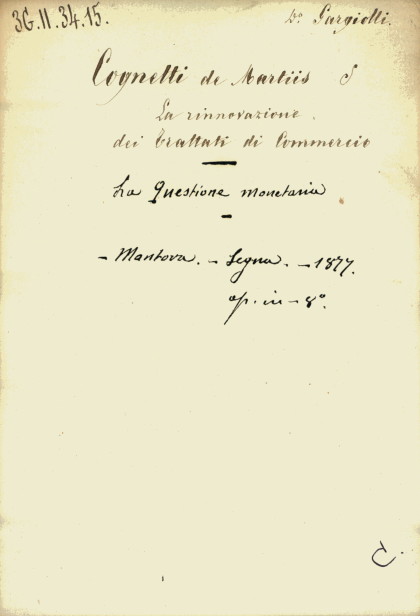 3G.II.34.15.
Do Gargiolli.
Cognetti de Martiis S
La rinnovazione
dei Trattati di Commercio
La Questione monetaria
- Mantova. - Segna. - 1877.
op. in - 8°.
C.